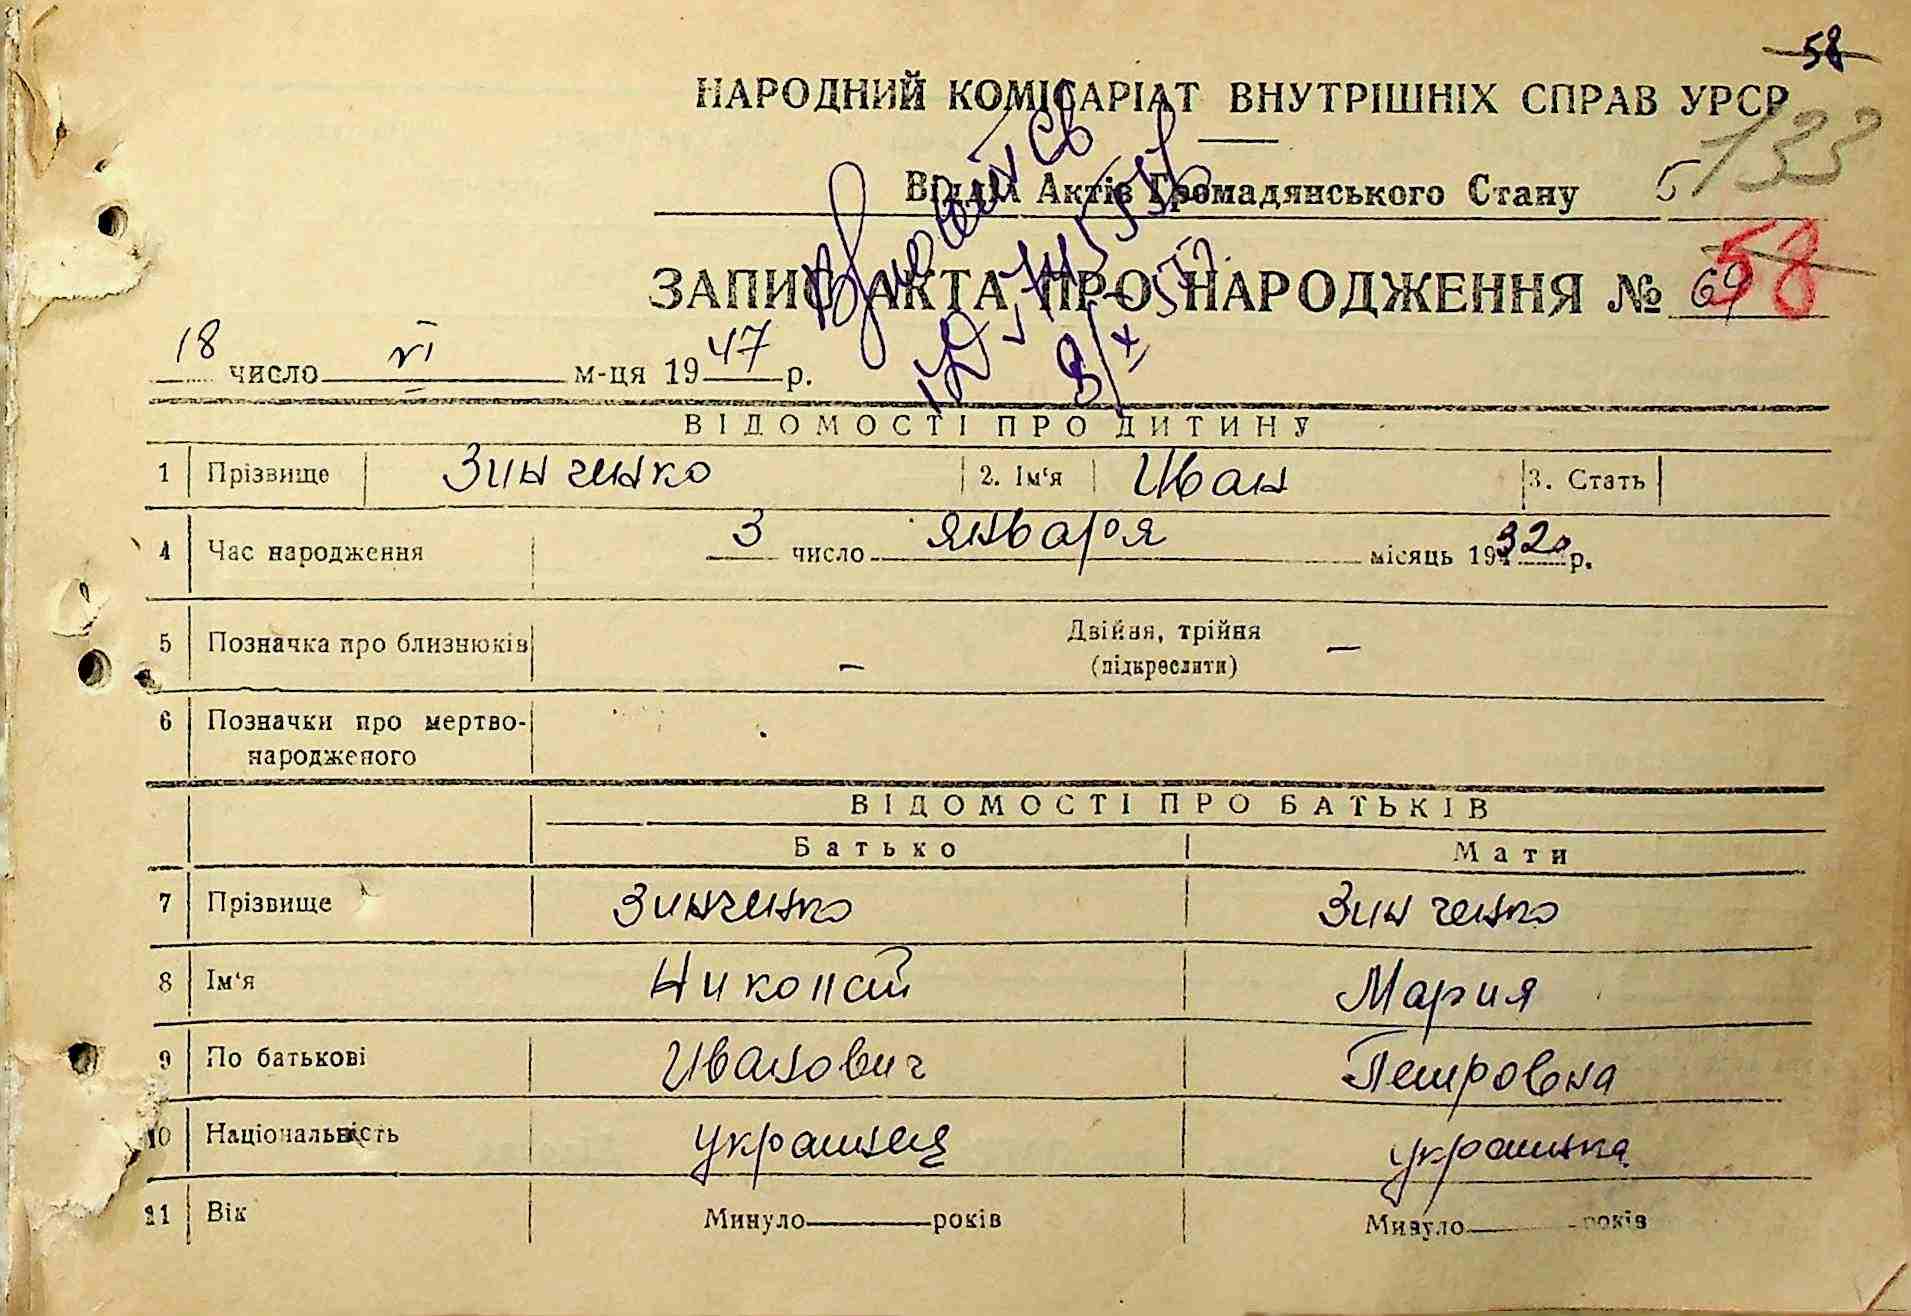 58
НАРОДНИЙ КОМІСАРІАТ ВНУТРІШНІХ СПРАВ УРСР
133
Відділ Актів Громадянського Стану 5
ЗАПИС АКТА ПРО НАРОДЖЕННЯ № 69 58
18 число VI м-ця 1947 р.
ВІДОМОСТІ ПРО ДИТИНУ
1 Прізвище Зинченко 2. Ім'я Иван 3. Стать
4 Час народження 3 число января місяць 1932 р.
5 Позначка про близнюків — Двійня, трійня —
(підкреслити)
6 Позначки про мертво-
народженого
ВІДОМОСТІ ПРО БАТЬКІВ
Батько Мати
7 Прізвище Зинченко Зинченко
8 Ім'я Николай Мария
9 По батькові Иванович Петровна
10 Національність украинец украинка
11 Вік Минуло ____ років Минуло ____ років